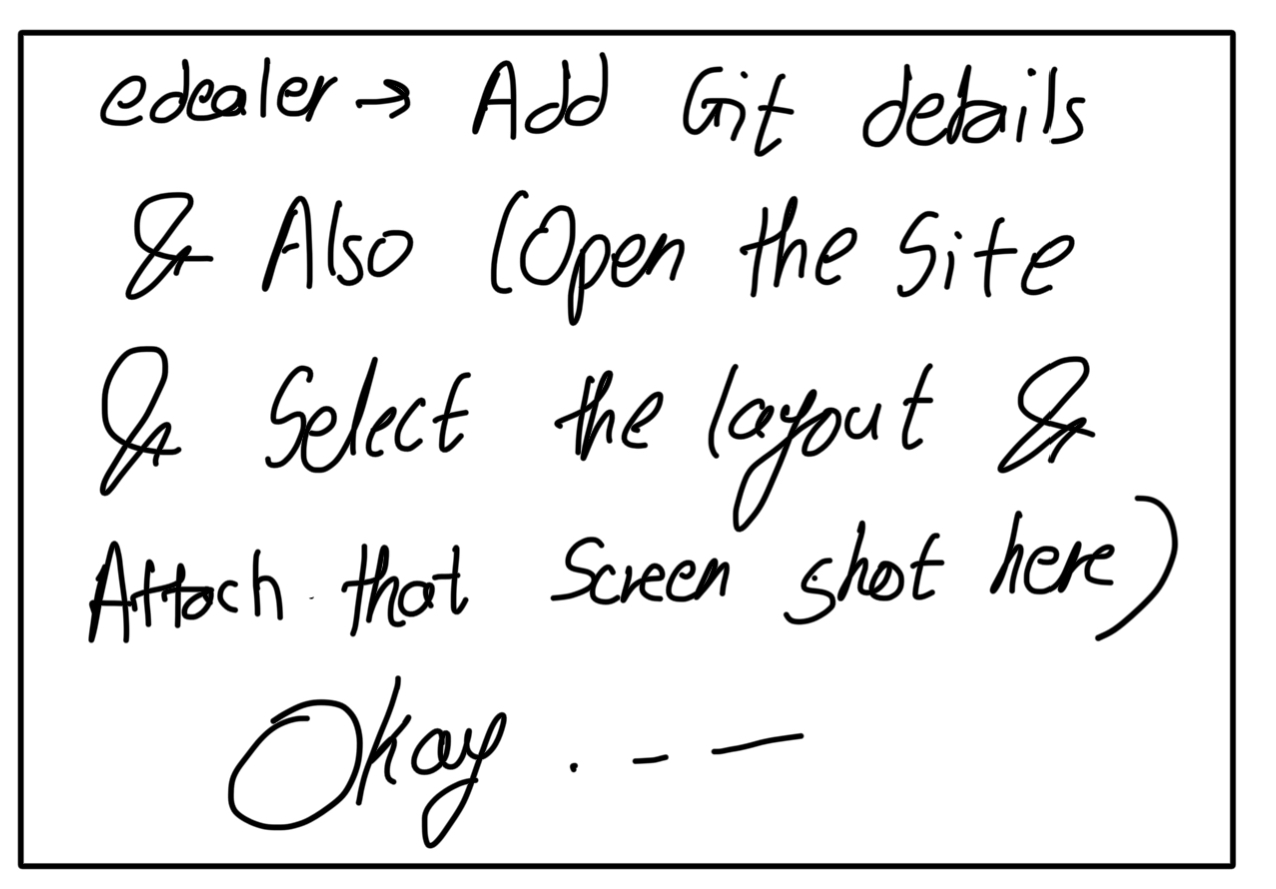 edealer → Add Git details
& Also (Open the Site
& Select the layout &
Attach that Screen shot here)
Okay . – —